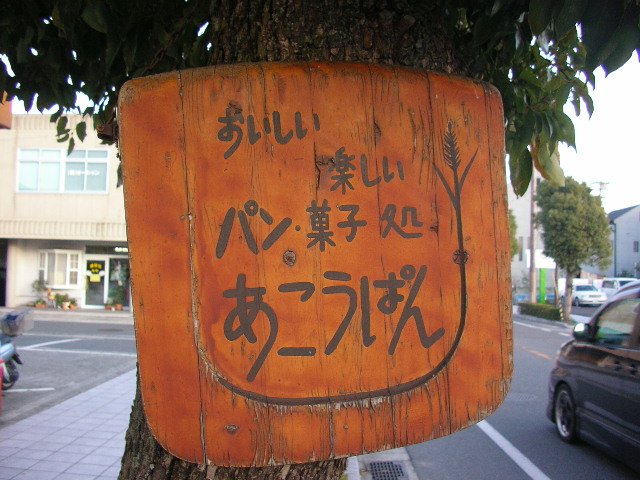 おいしい
楽しい
パン・菓子処
あこうぱん